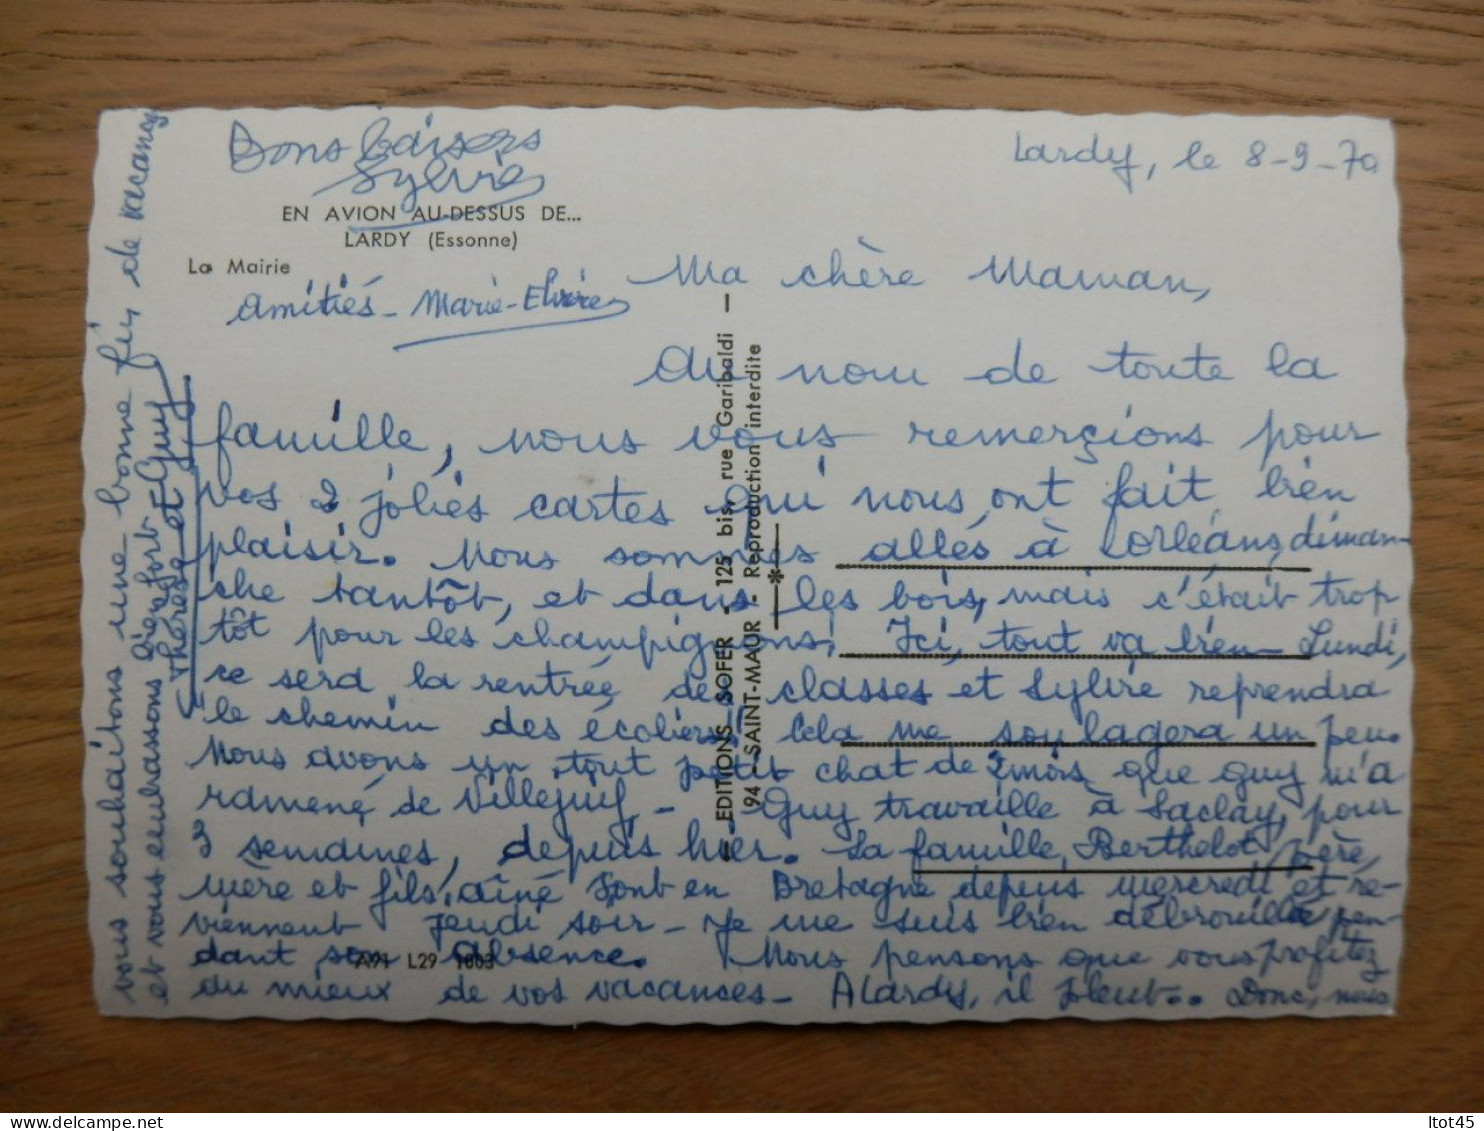 Bons baisers
Sylvie
Lardy, le 8-9-70
EN AVION AU-DESSUS DE...
LARDY (Essonne)
La Mairie
Amitiés - Marie-Elvire
Ma chère Maman,
Au nom de toute la
famille, nous vous remerçions pour
vos 2 jolies cartes qui nous ont fait bien
plaisir. Nous sommes allés à Lorléans, diman-
che tantôt, et dans les bois, mais c'était trop
tôt pour les champignons. Ici, tout va bien. Lundi,
ce sera la rentrée des classes et Sylvie reprendra
le chemin des écoliers. Cela me soulagera un peu.
Nous avons un tout petit chat de 2 mois que Guy m'a
ramené de Villejuif - Guy travaille à Saclay, pour
3 semaines, depuis hier. La famille Berthelot, père,
mère et fils aîné sont en Bretagne depuis mercredi et re-
viennent jeudi soir - Je me suis bien débrouillée pen-
dant son absence. Nous pensons que vous profitez
du mieux de vos vacances - A Lardy, il pleut.. Donc, nous
vous souhaitons une bonne fin de vacances
et vous embrassons bien fort -
Thérèse et Guy
EDITIONS SOFER - 125 bis, rue Garibaldi -
94 - SAINT-MAUR - Reproduction interdite
A91 L29 1003
ltot45